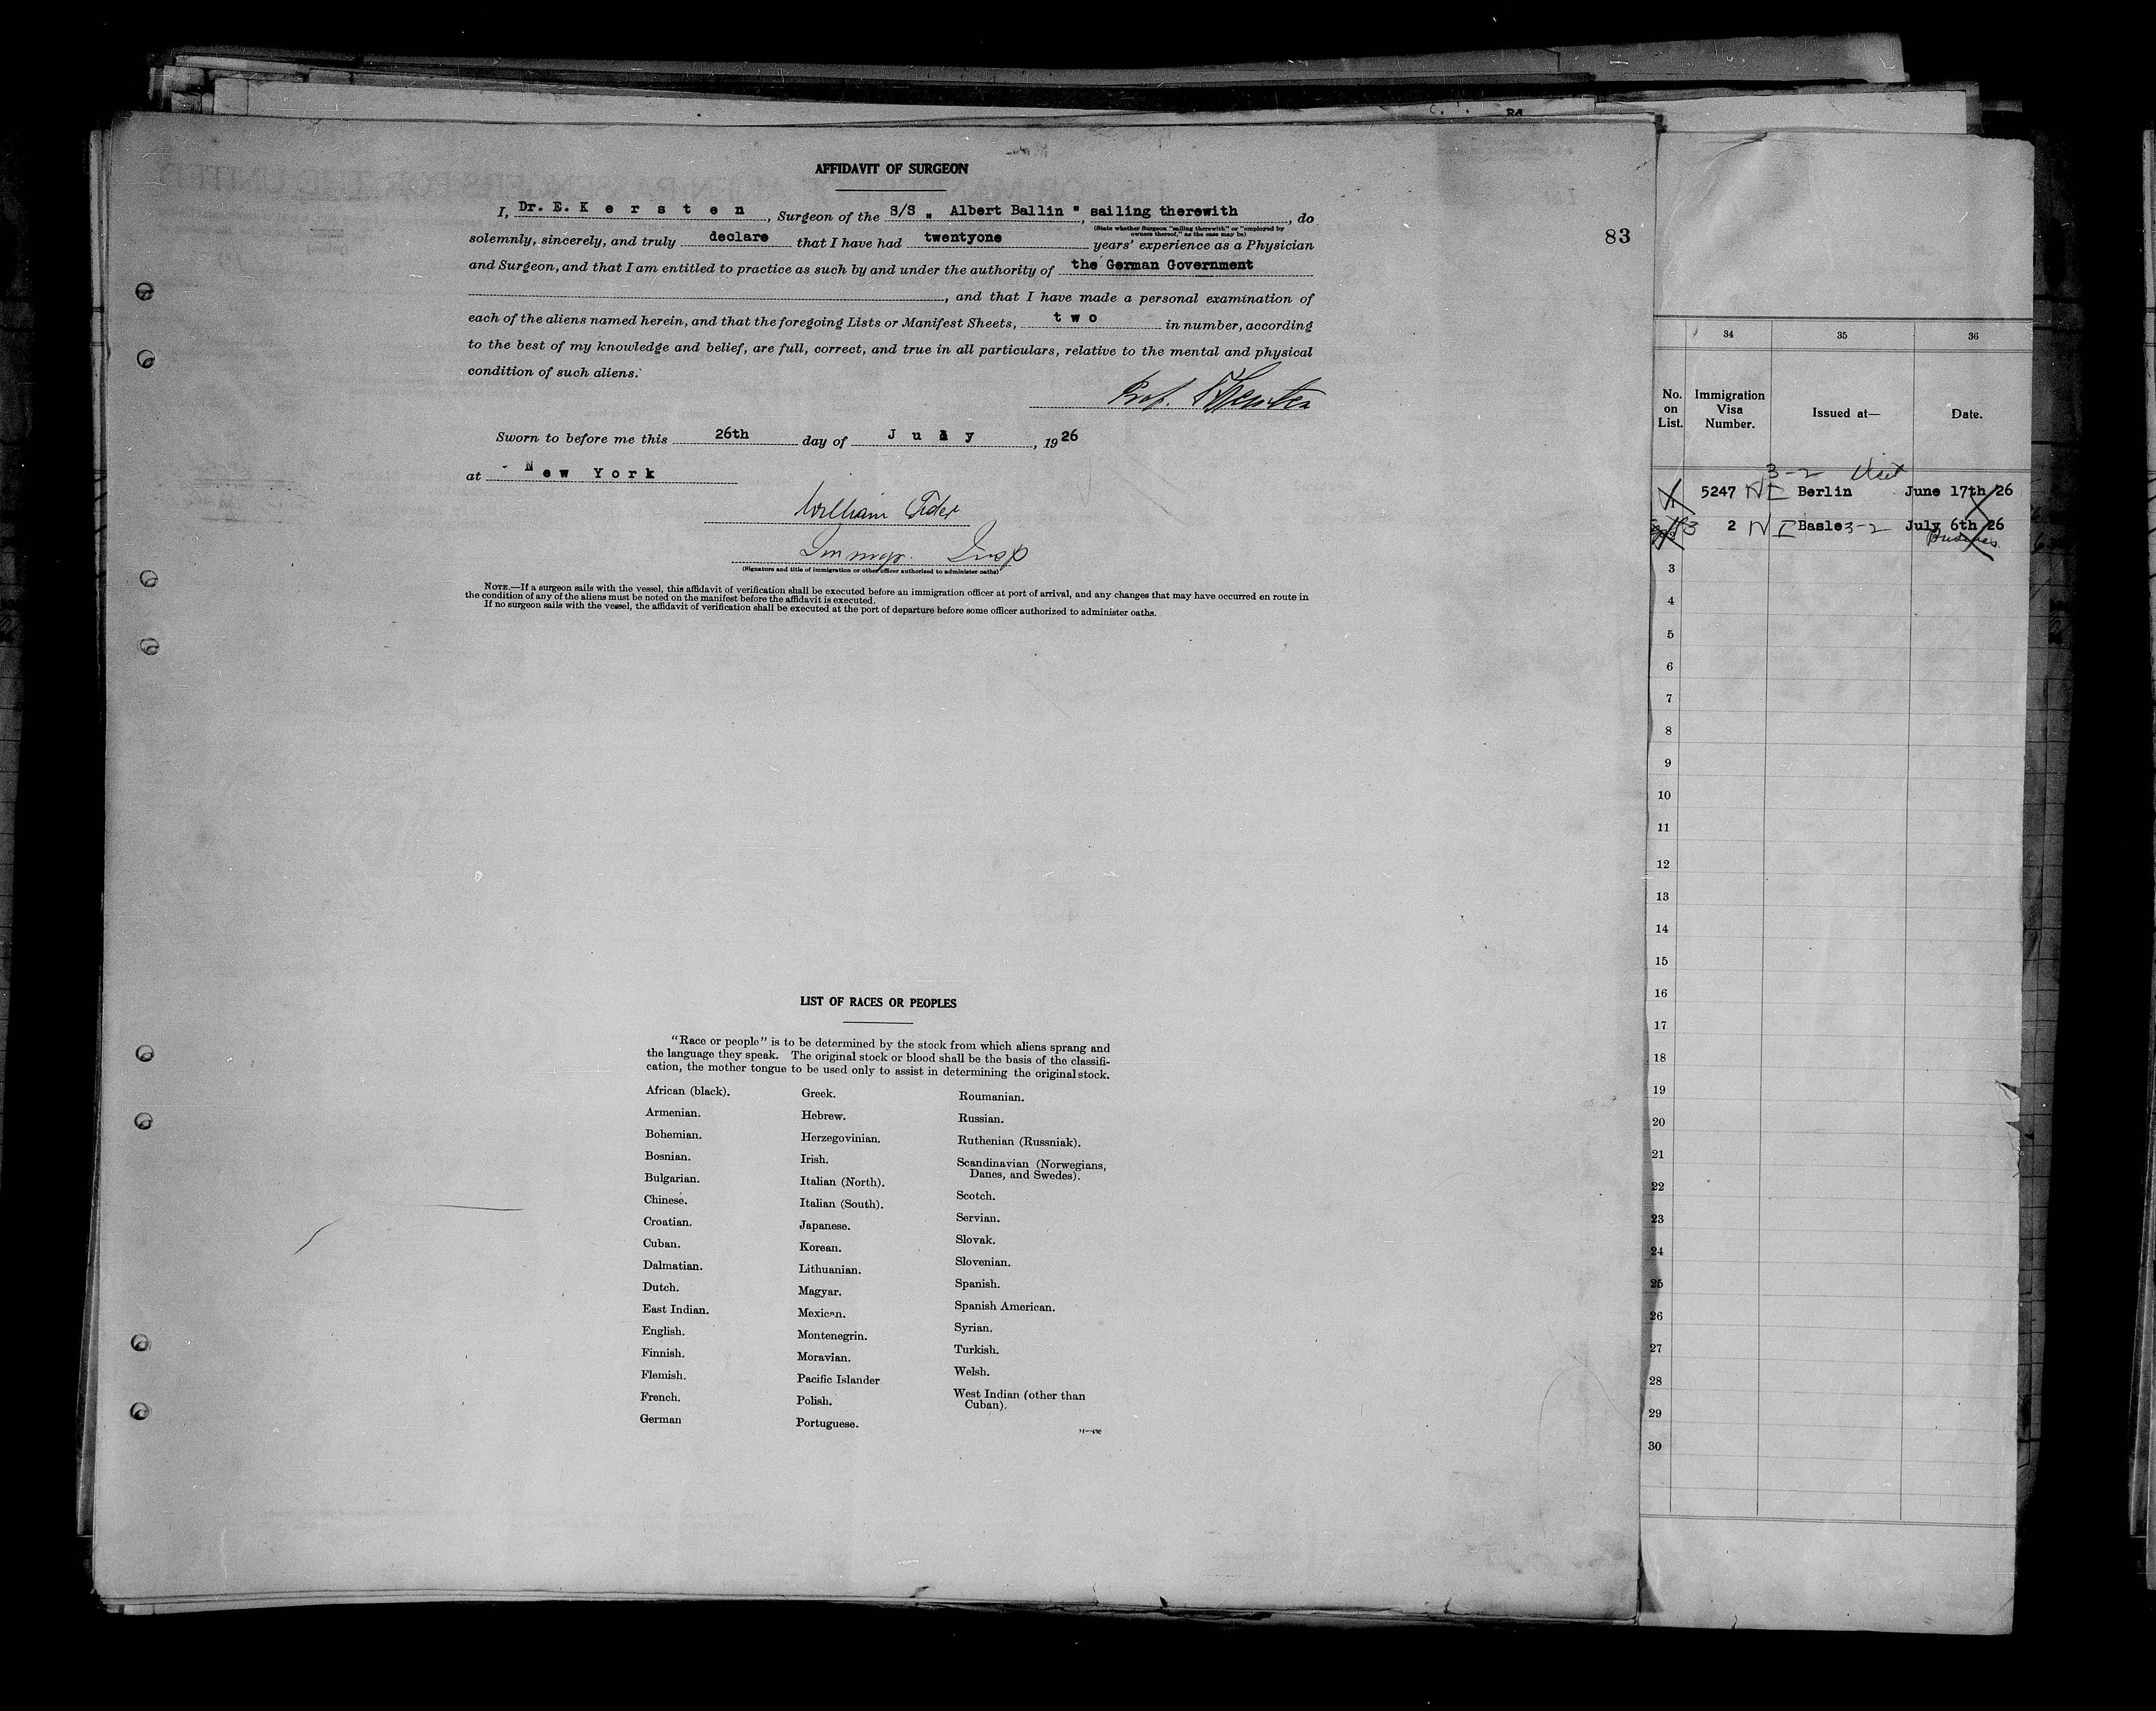 AFFIDAVIT OF SURGEON
I, Dr. E. K e r s t e n, Surgeon of the S/S „ Albert Ballin ", sailing therewith, do
(State whether Surgeon "sailing therewith" or "employed by
owners thereof," as the case may be)
solemnly, sincerely, and truly declare that I have had twentyone years' experience as a Physician
and Surgeon, and that I am entitled to practice as such by and under the authority of the German Government
, and that I have made a personal examination of
each of the aliens named herein, and that the foregoing Lists or Manifest Sheets, t w o in number, according
to the best of my knowledge and belief, are full, correct, and true in all particulars, relative to the mental and physical
condition of such aliens.
Sworn to before me this 26th day of J u l y, 1926
at New York
William
Immgr. Insp
(Signature and title of immigration or other officer authorized to administer oaths)
NOTE.—If a surgeon sails with the vessel, this affidavit of verification shall be executed before an immigration officer at port of arrival, and any changes that may have occurred en route in
the condition of any of the aliens must be noted on the manifest before the affidavit is executed.
If no surgeon sails with the vessel, the affidavit of verification shall be executed at the port of departure before some officer authorized to administer oaths.
LIST OF RACES OR PEOPLES
"Race or people" is to be determined by the stock from which aliens sprang and
the language they speak. The original stock or blood shall be the basis of the classifi-
cation, the mother tongue to be used only to assist in determining the original stock.
African (black).
Armenian.
Bohemian.
Bosnian.
Bulgarian.
Chinese.
Croatian.
Cuban.
Dalmatian.
Dutch.
East Indian.
English.
Finnish.
Flemish.
French.
German
Greek.
Hebrew.
Herzegovinian.
Irish.
Italian (North).
Italian (South).
Japanese.
Korean.
Lithuanian.
Magyar.
Mexican.
Montenegrin.
Moravian.
Pacific Islander
Polish.
Portuguese.
Roumanian.
Russian.
Ruthenian (Russniak).
Scandinavian (Norwegians,
Danes, and Swedes).
Scotch.
Servian.
Slovak.
Slovenian.
Spanish.
Spanish American.
Syrian.
Turkish.
Welsh.
West Indian (other than
Cuban).
83
34 35 36
No. on List. Immigration Visa Number. Issued at— Date.
3-2
5247 Berlin June 17th 26
2 Basle 3-2 July 6th 26
3
4
5
6
7
8
9
10
11
12
13
14
15
16
17
18
19
20
21
22
23
24
25
26
27
28
29
30